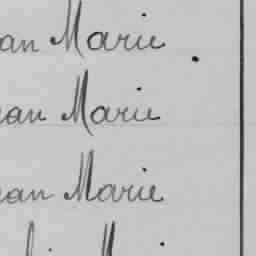 an Marie
ean Marie
ean Marie